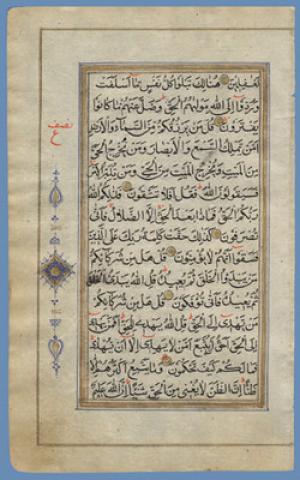 لغفلين هنالك تبلوا كل نفس ما اسلفت
وردوا الى الله موليهم الحق وضل عنهم ما كانوا
نصف
ع
يفترون قل من يرزقكم من السماء والارض
امن يملك السمع والابصار ومن يخرج الحي
من الميت ويخرج الميت من الحي ومن يدبر الامر
فسيقولون الله فقل افلا تتقون فذلكم الله
ربكم الحق فماذا بعد الحق الا الضلال فانى
تصرفون كذلك حقت كلمة ربك على الذين
فسقوا انهم لا يؤمنون قل هل من شركائكم
من يبدؤا الخلق ثم يعيده قل الله يبدؤا الخلق
ثم يعيده فانى تؤفكون قل هل من شركائكم
من يهدي الى الحق قل الله يهدي للحق افمن يهدي
الى الحق احق ان يتبع امن لا يهدي الا ان يهدى
فما لكم كيف تحكمون وما يتبع اكثرهم الا
ظنا ان الظن لا يغني من الحق شيئا ان الله عليم